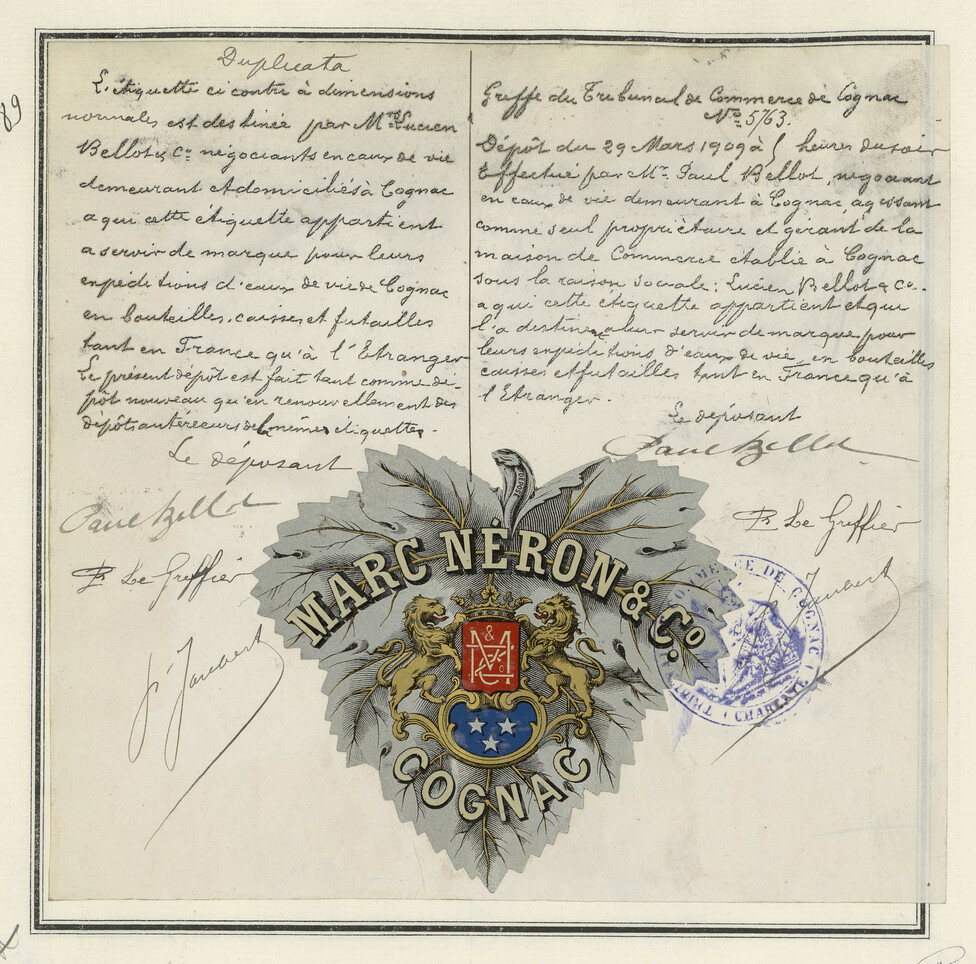 89
Duplicata
L'étiquette ci contre à dimensions
normales est destinée par Mrs Lucien
Bellot & Co négociants en eaux de vie
demeurant et domiciliés à Cognac
a qui cette étiquette appartient
a servir de marque pour leurs
expéditions d'eaux de vie de Cognac
en bouteilles, caisses et futailles
tant en France qu'à l'Etranger
Le présent dépôt est fait tant comme dé-
pôt nouveau qu'en renouvellement des
dépôts antérieurs de la même étiquette.
Le déposant
Paul Bellot
Pr Le Greffier
Greffe du Tribunal de Commerce de Cognac
No 5763.
Dépôt du 29 Mars 1909 à heures du soir
Effectué par Mr Paul Bellot, négociant
en eaux de vie demeurant à Cognac, agissant
comme seul propriétaire et gérant de la
maison de Commerce établie à Cognac
sous la raison sociale: Lucien Bellot & Co.
a qui cette étiquette appartient et qui
l'a destinée a leur servir de marque pour
leurs expéditions d'eaux de vie en bouteilles
caisses et futailles tant en France qu'à
l'Etranger.
Le déposant
Paul Bellot
Pr Le Greffier
DÉPOSÉ
MARC NÉRON & Co.
M & N Co
COGNAC
TRIBUNAL DE COMMERCE DE COGNAC (CHARENTE)